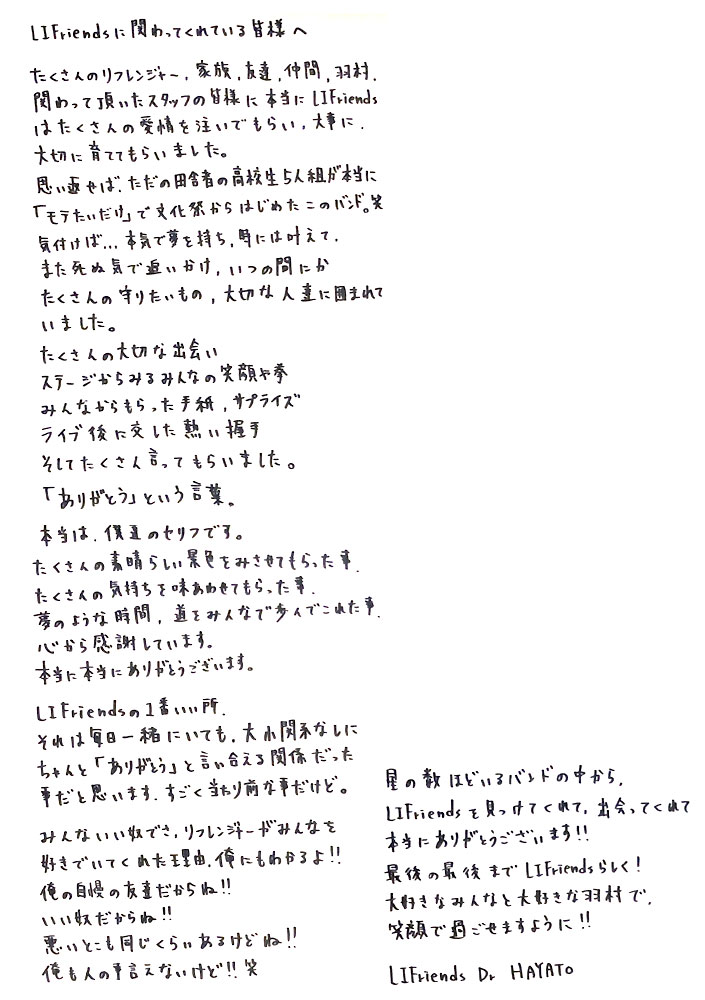 LIFriendsに関わってくれている皆様へ
たくさんのリフレンジャー，家族，友達，仲間，羽村，
関わって頂いたスタッフの皆様に本当にLIFriends
はたくさんの愛情を注いでもらい，大事に，
大切に育ててもらいました。
思い返せば，ただの田舎者の高校生5人組が本当に
「モテたいだけ」で文化祭からはじめたこのバンド。笑
気付けば...本気で夢を持ち，時には叶えて，
また死ぬ気で追いかけ，いつの間にか
たくさんの守りたいもの，大切な人達に囲まれて
いました。
たくさんの大切な出会い
ステージからみるみんなの笑顔や拳
みんなからもらった手紙，サプライズ
ライブ後に交した熱い握手
そしてたくさん言ってもらいました。
「ありがとう」という言葉。
本当は，僕達のセリフです。
たくさんの素晴らしい景色をみさせてもらった事，
たくさんの気持ちを味あわせてもらった事，
夢のような時間，道をみんなで歩んでこれた事，
心から感謝しています。
本当に本当にありがとうございます。
LIFriendsの1番いい所，
それは毎日一緒にいても，大小関係なしに
ちゃんと「ありがとう」と言い合える関係だった
事だと思います，すごく当たり前な事だけど。
みんないい奴でさ，リフレンジャーがみんなを
好きでいてくれた理由，俺にもわかるよ!!
俺の自慢の友達だからね!!
いい奴だからね!!
悪いとこも同じくらいあるけどね!!
俺も人の事言えないけど!!笑
星の数ほどいるバンドの中から，
LIFriendsを見つけてくれて，出会ってくれて
本当にありがとうございます!!
最後の最後までLIFriendsらしく!
大好きなみんなと大好きな羽村で，
笑顔で過ごせますように!!
LIFriends Dr HAYATO